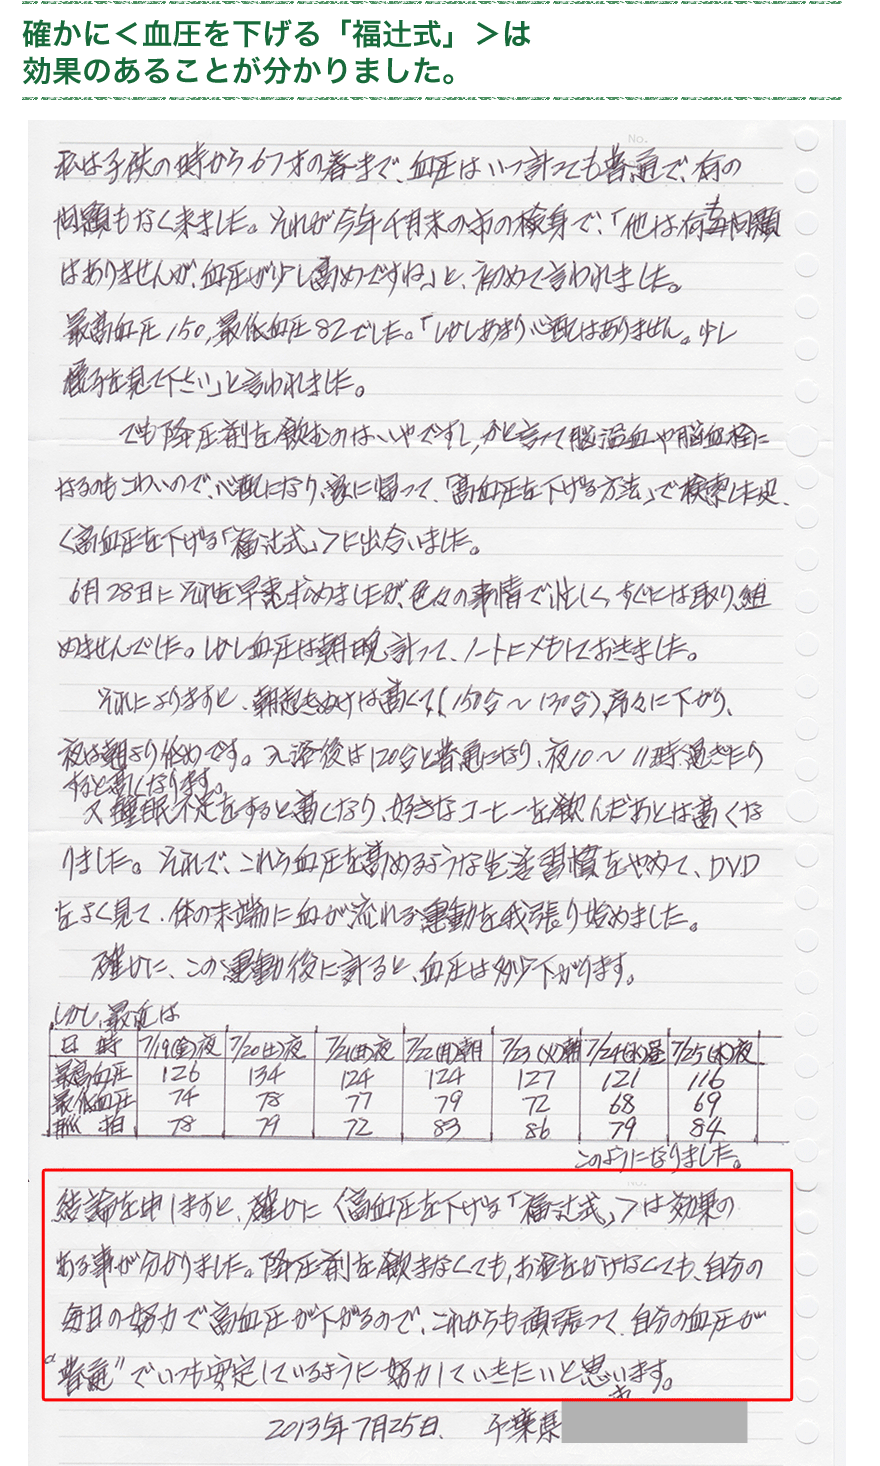 確かに＜血圧を下げる「福辻式」＞は
効果のあることが分かりました。
No.
私は子供の時から67才の春まで、血圧はいつ計っても普通で、何の
問題もなく来ました。それが今年4月末の市の検身で、「他は何も問題
はありませんが、血圧が少し高めですね」と、初めて言われました。
最高血圧150,最低血圧82でした。「しかしあまり心配はありません。少し
様子を見て下さい」と言われました。
でも降圧剤を飲むのはいやですし、かと言って脳溢血や脳血栓に
なるのもこわいので、心配になり、家に帰って、「高血圧を下げる方法」で検索した処、
＜高血圧を下げる「福辻式」＞に出合いました。
6月28日にそれを早速求めましたが、色々の事情で忙しく、すぐには取り組
めませんでした。しかし血圧は朝晩計って、ノートにメモしておきました。
それによりますと、朝起きぬけは高くて(150台～130台)、序々に下がり、
夜は朝より低めです。入浴後は120台と普通になり、夜10～11時過ぎたり
すると高くなります。
又睡眠不足をすると高くなり、好きなコーヒーを飲んだあとは高くな
りました。それで、これら血圧を高めるような生活習慣をやめて、DVD
をよく見て、体の末端に血が流れる運動を頑張り始めました。
確かに、この運動後に計ると、血圧は少し下がります。
しかし、最近は
日 時 7/19(金)夜 7/20(土)夜 7/21(日)夜 7/22(月)朝 7/23(火)朝 7/24(水)昼 7/25(木)夜
最高血圧 126 134 124 124 127 121 116
最低血圧 74 78 77 79 72 68 69
脈 拍 78 79 72 83 86 79 84
このようになりました。
No.
結論を申しますと、確かに＜高血圧を下げる「福辻式」＞は効果の
ある事が分かりました。降圧剤を飲まなくても、お金をかけなくても、自分の
毎日の努力で高血圧が下がるので、これからも頑張って、自分の血圧が
"普通"でいつも安定しているように努力していきたいと思います。
2013年7月25日、 千葉県